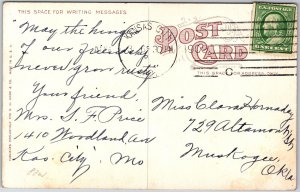 THIS SPACE FOR WRITING MESSAGES.
May the hinges
of our friendship
never grow rusty
Your friend,
Mrs. S. F. Price
1410 Woodland Ave
Kas. City, Mo
POST
CARD
THIS SPACE FOR ADDRESS ONLY.
Miss Clara
729 Altamont St
Muskogee,
Okla